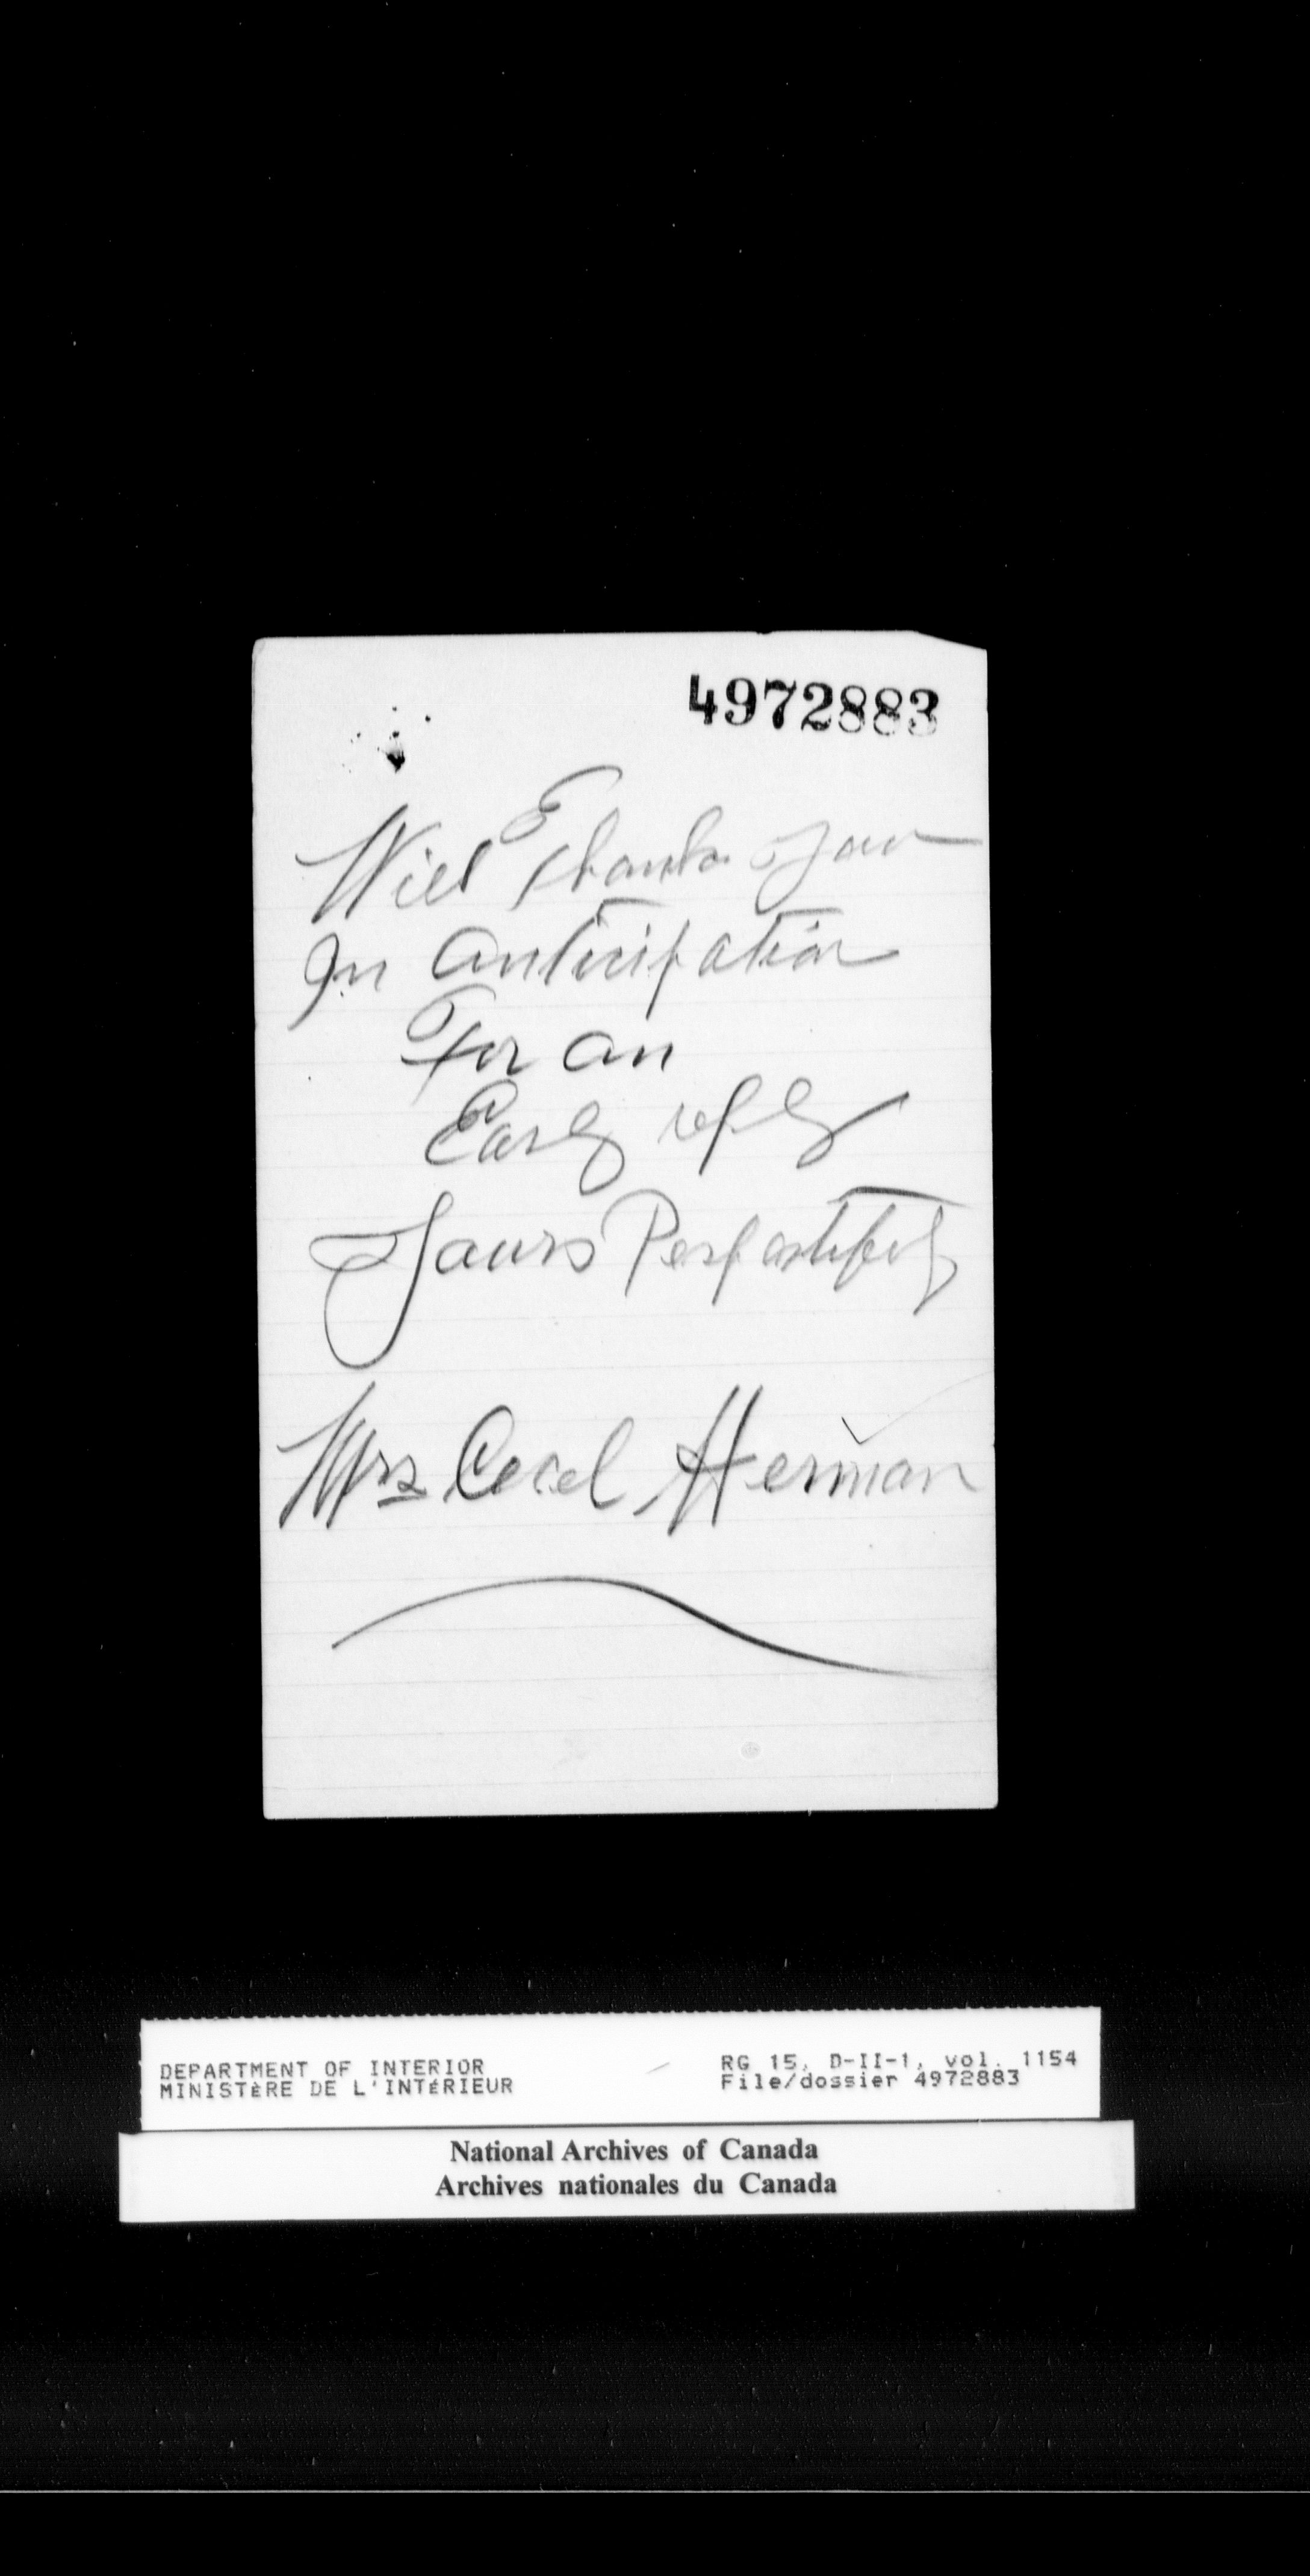 4972883
Will Thank you
In anticipation
For an
Early reply
Yours Respectfuly
Mrs Cecel Herman
DEPARTMENT OF INTERIOR
MINISTÈRE DE L'INTÉRIEUR
RG 15, D-II-1, vol. 1154
File/dossier 4972883
National Archives of Canada
Archives nationales du Canada